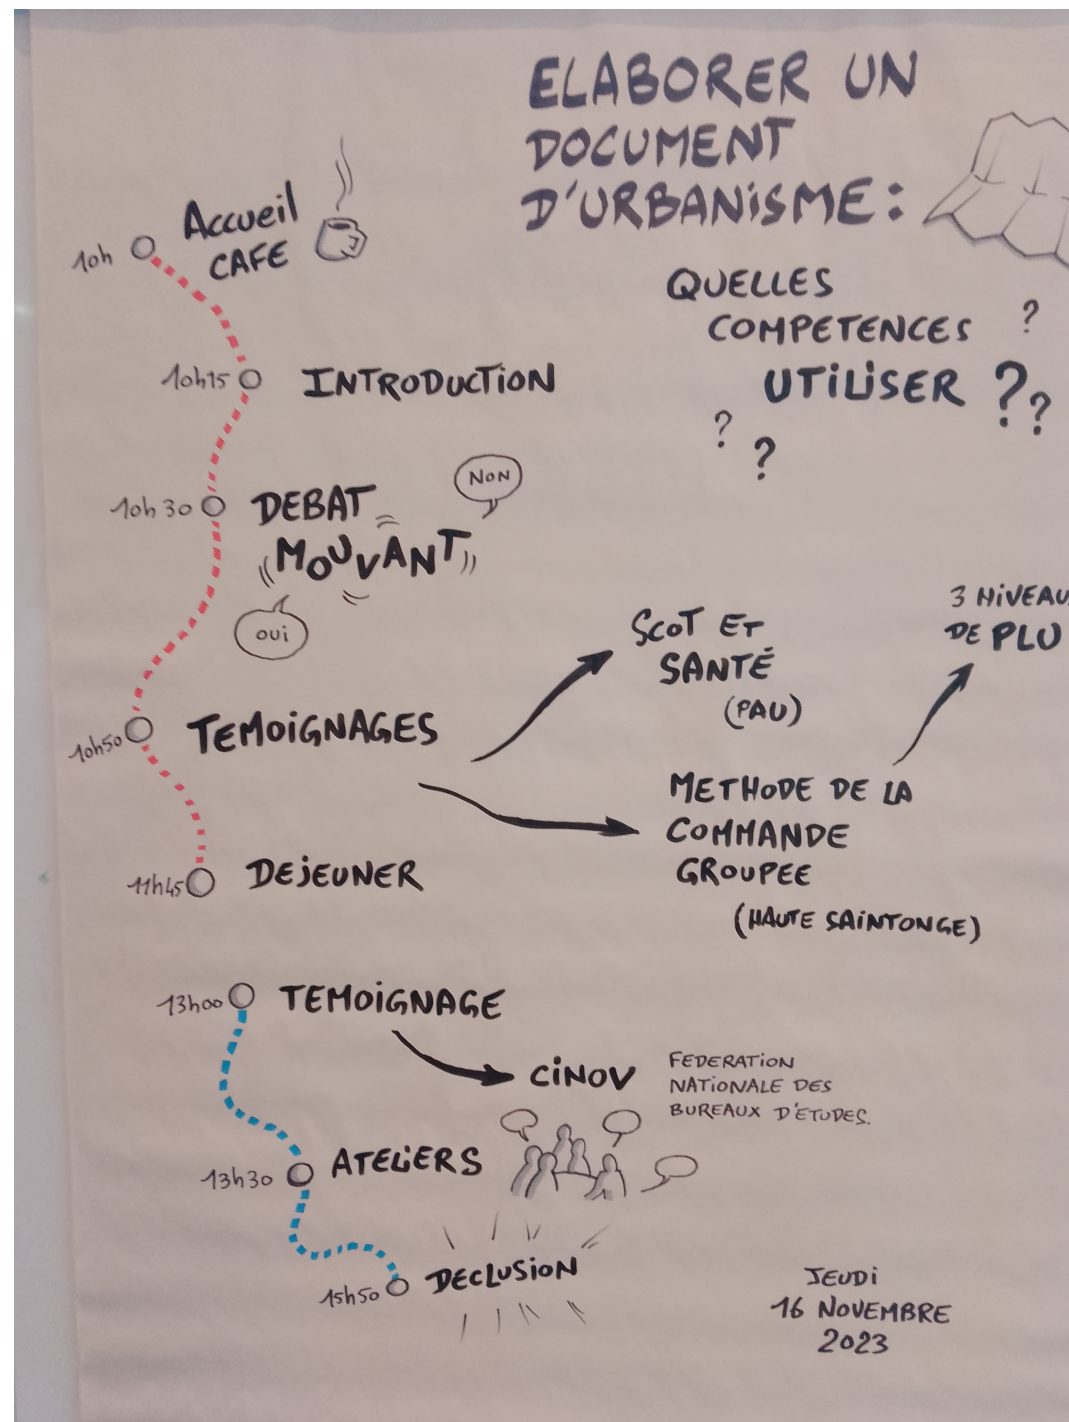 ELABORER UN
DOCUMENT
D'URBANISME :
QUELLES
COMPETENCES
UTILISER ???
?
? ?
10h
Accueil
CAFE
10h15
INTRODUCTION
10h30
DEBAT
MOUVANT
NON
OUI
10h50
TEMOIGNAGES
SCOT ET
SANTÉ
(PAU)
METHODE DE LA
COMMANDE
GROUPEE
(HAUTE SAINTONGE)
3 NIVEAU
DE PLU
11h45
DEJEUNER
13h00
TEMOIGNAGE
CINOV
FEDERATION
NATIONALE DES
BUREAUX D'ETUDES.
13h30
ATELIERS
15h50
DECLUSION
JEUDI
16 NOVEMBRE
2023